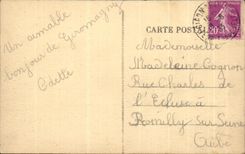 Un aimable
bonjour de Giromagny
Odette
CARTE POSTALE
Mademoiselle
Madeleine Gognon
Rue Charles de
l'Ecluse
Romilly sur Seine
Aube